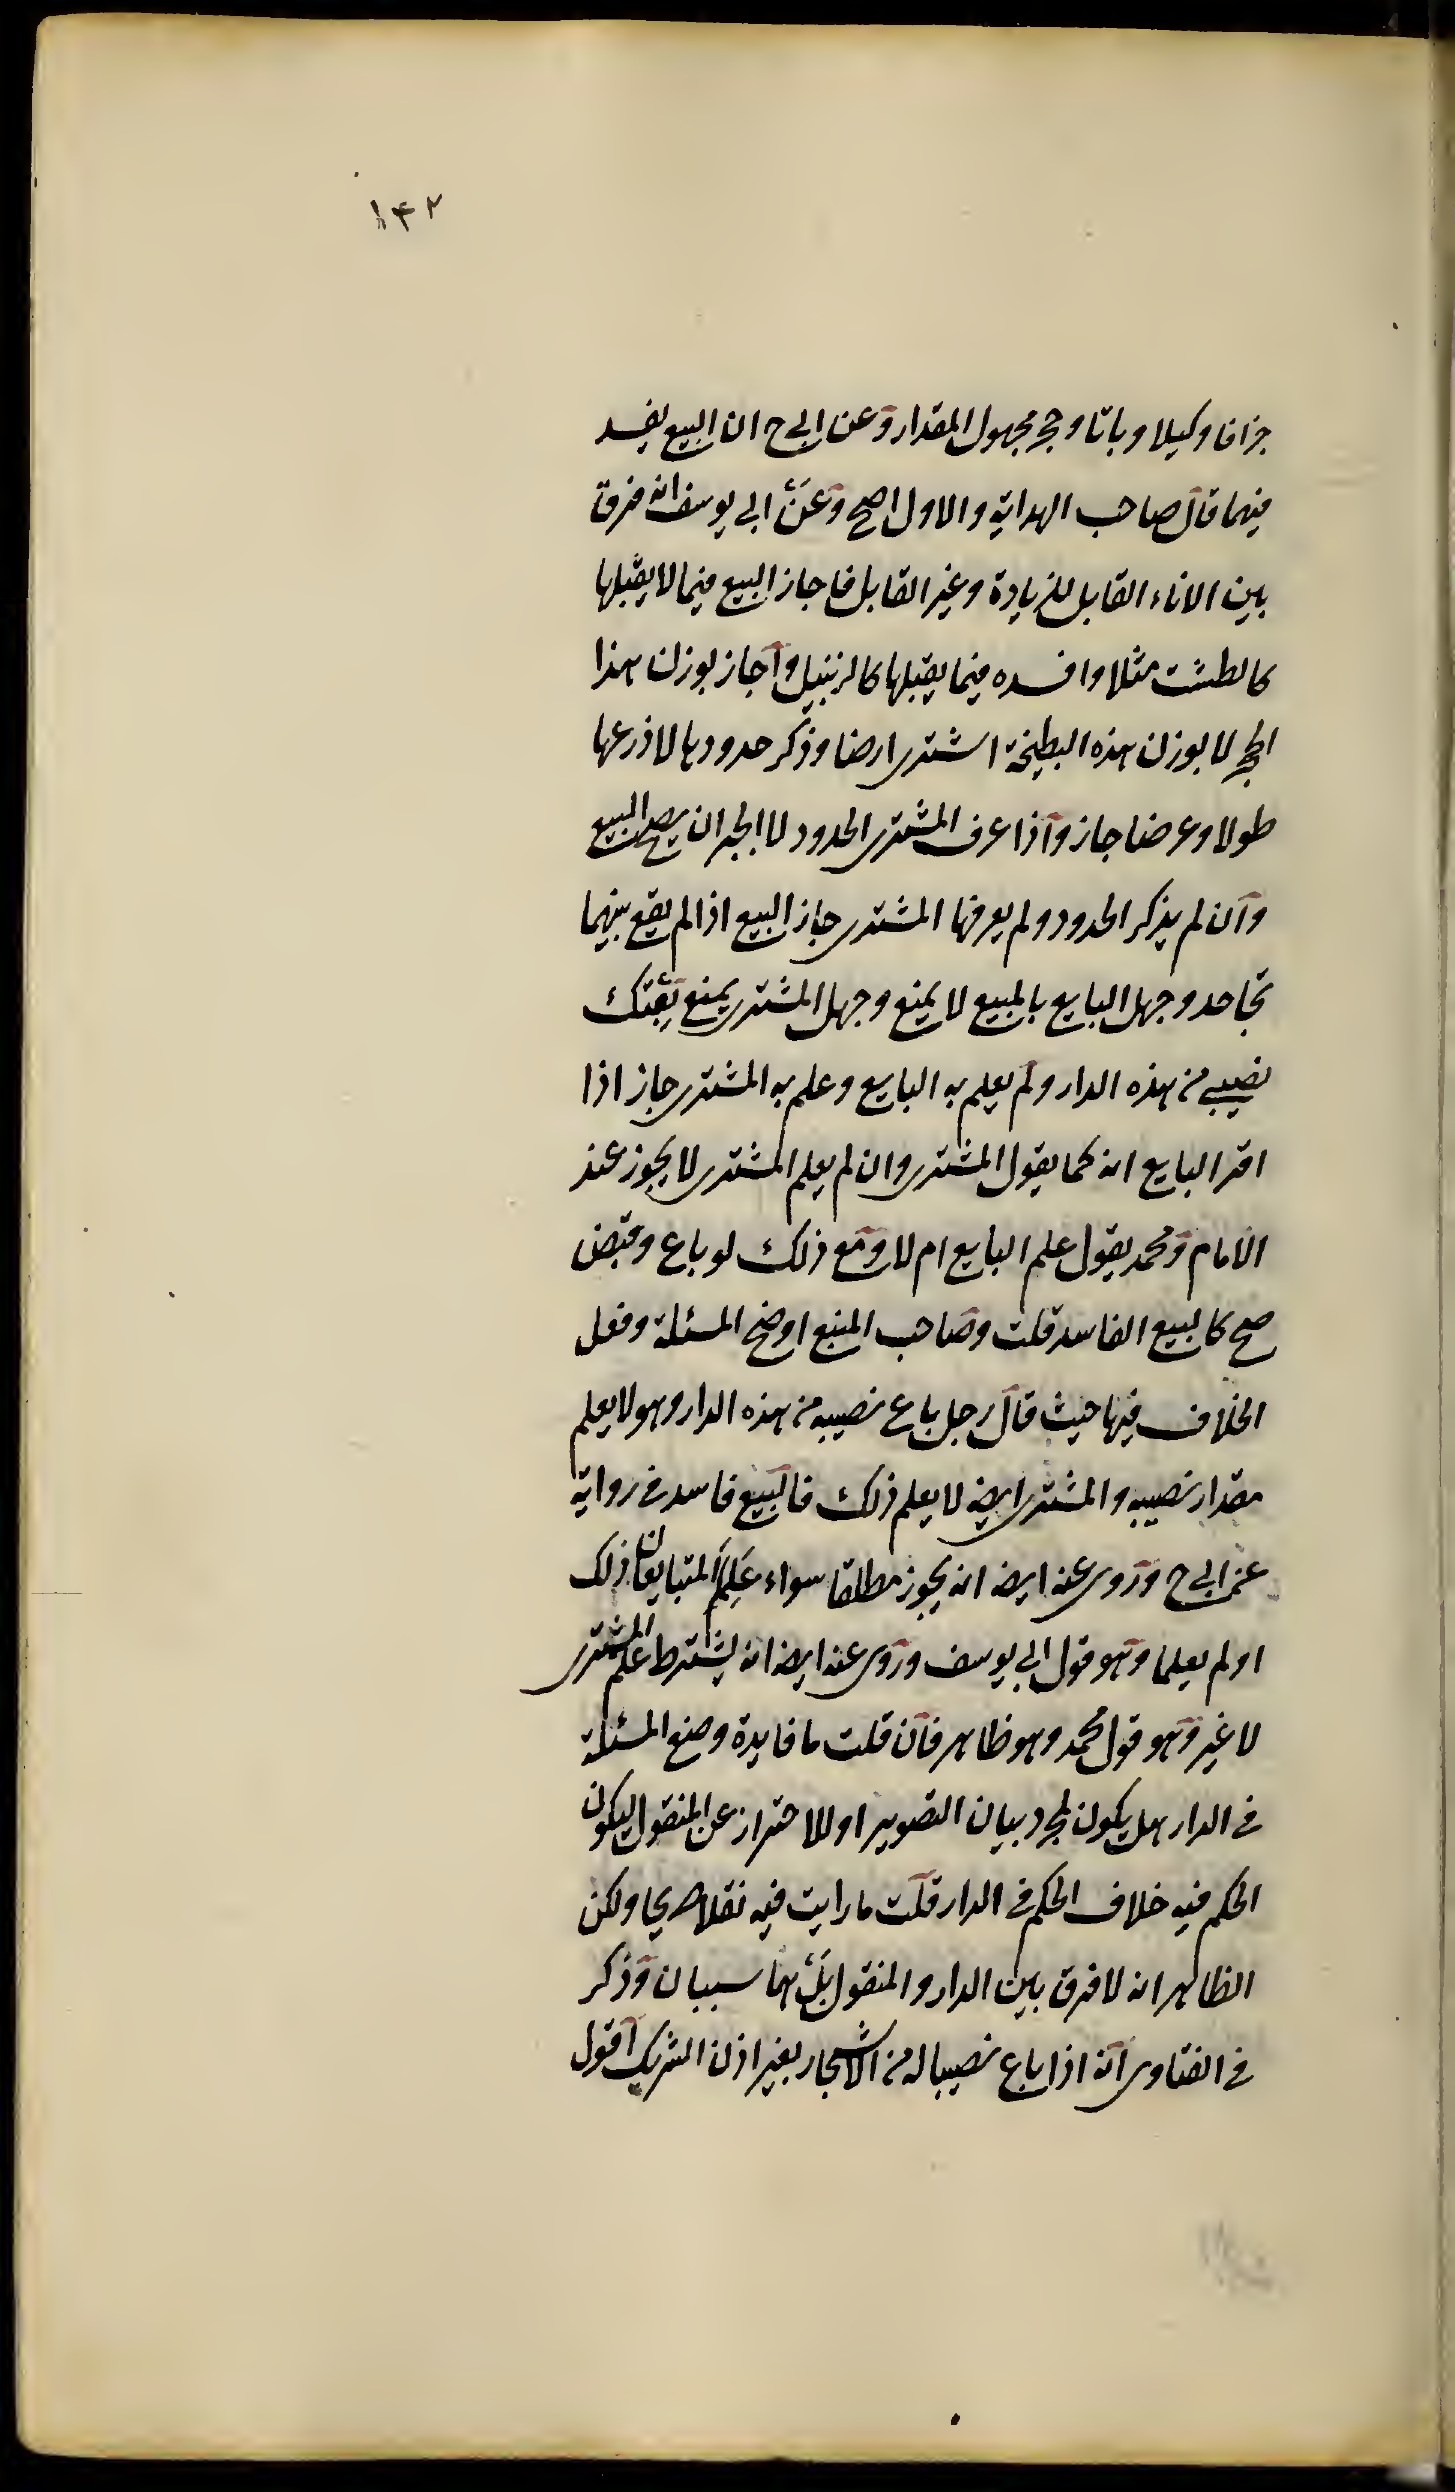 ١٤٢
جزافا وكيلا وباناء وحجر مجهول المقدار وعن ابي ح ان البيع يفسد
فيهما قال صاحب الهداية والاول اصح وعن ابي يوسف انه فرق
بين الاناء القابل للزيادة وغير القابل فاجاز البيع فيما لا يقبلها
كالطشت مثلا وافسده فيما يقبلها كالزنبيل واجاز بوزن هذا
الحجر لا بوزن هذه البطيخة اشترى ارضا وذكر حدودها لا ذرعها
طولا وعرضا جاز واذا عرف المشترى الحدود لا الجيران يصح البيع
وان لم يذكر الحدود ولم يعرفها المشترى جاز البيع اذا لم يقع بينهما
تجاحد وجهل البايع بالمبيع لا يمنع وجهل المشترى يمنع بعتك
نصيبي من هذه الدار ولم يعلم به البايع وعلم به المشترى جاز اذا
اقر البايع انه كما يقول المشترى وان لم يعلم المشترى لا يجوز عند
الامام ومحمد يقول علم البايع ام لا ومع ذلك لو باع وقبض
صح كالبيع الفاسد قلت وصاحب المنبع اوضح المسئلة ونقل
الخلاف فيها حيث قال رجل باع نصيبه من هذه الدار وهو لا يعلم
مقدار نصيبه والمشترى ايضه لا يعلم ذلك فالبيع فاسد في رواية
عن ابي ح وروى عنه ايضه انه يجوز مطلقا سواء علم المتبايعان ذلك
او لم يعلما وهو قول ابي يوسف وروى عنه ايضه انه يشترط علم المشترى
لا غير وهو قول محمد وهو ظاهر فان قلت ما فايدة وضع المسئلة
في الدار هل يكون لمجرد بيان التصوير او للاحتراز عن المنقول ليكون
الحكم فيه خلاف الحكم في الدار قلت ما رايت فيه نقلا صريحا ولكن
الظاهر انه لا فرق بين الدار والمنقول بل هما سيان وذكر
في الفتاوى انه اذا باع نصيبا له من الاشجار بغير اذن الشريك اقول